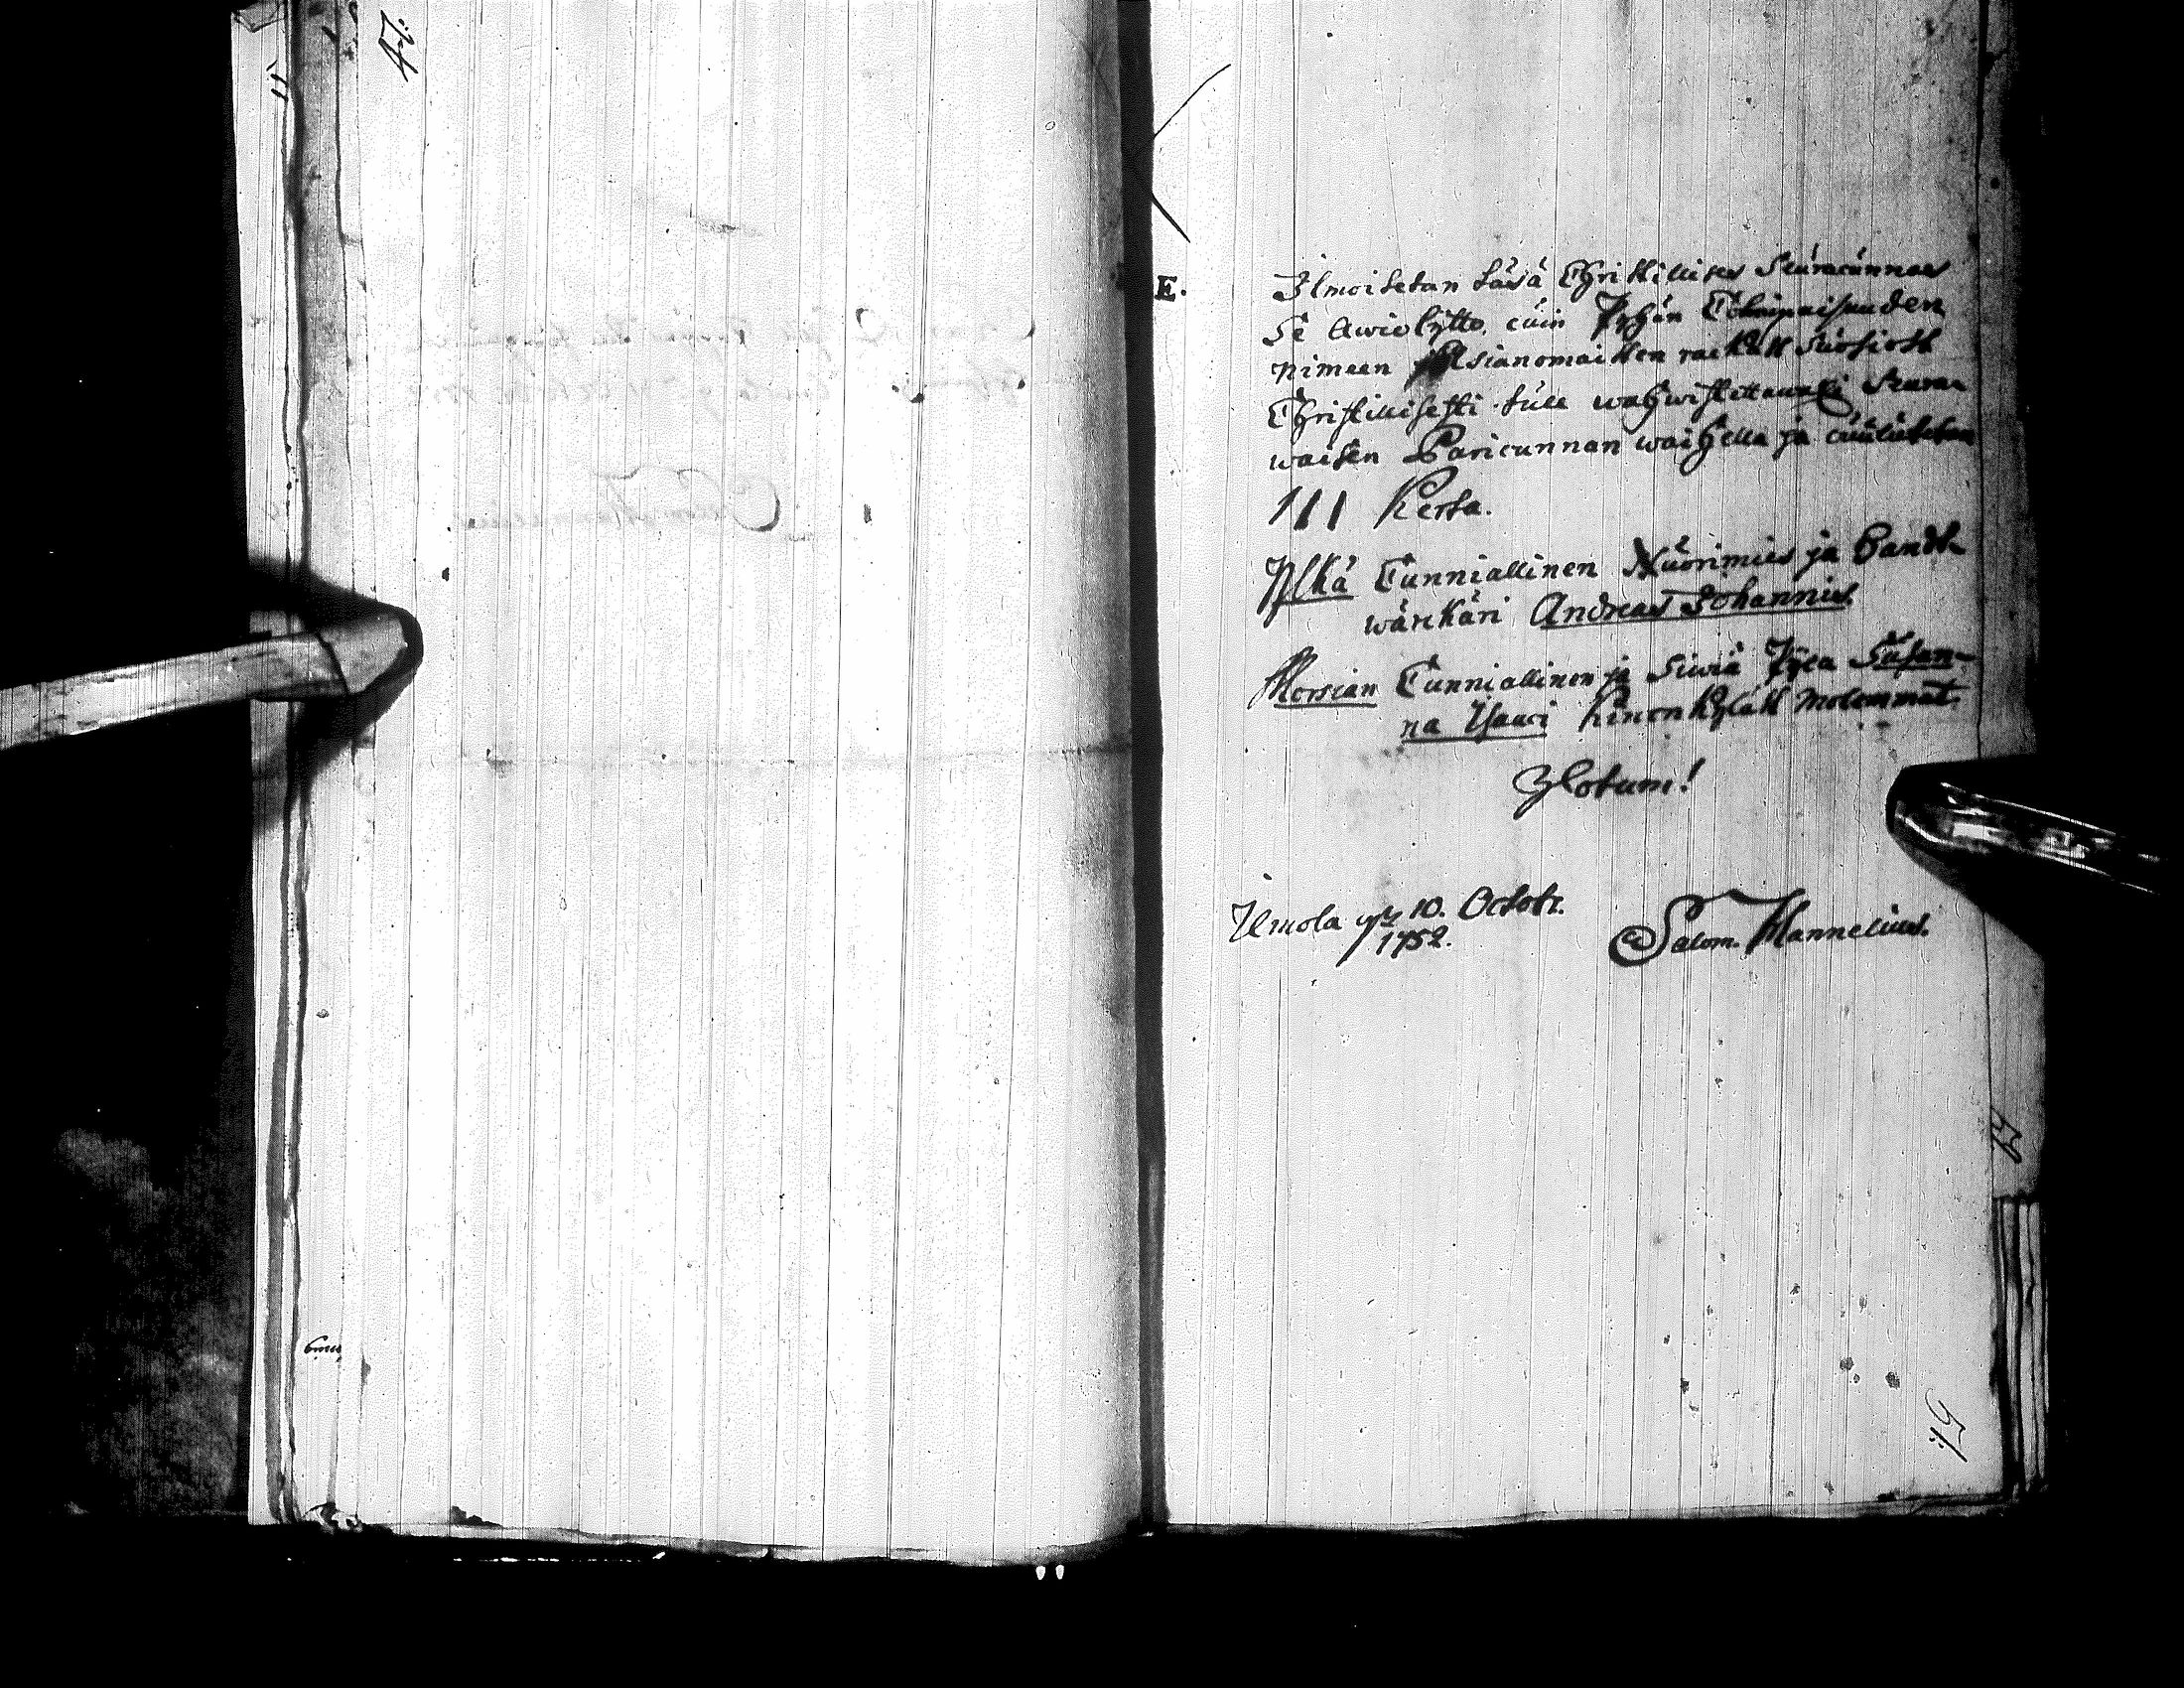 47.
11
E.
Ilmoitetan täsä Christillises Seuracunnas
se Awioliitto, cuin Pyhän Colminaisuuden
nimeen ja Asianomaisten rackast Suosiost
Christillisesti tule wahwistettawaxi Seura-
waisen Paricunnan waihella ja cuulutetan
111 Kerta.
Ylkä Cunniallinen Nuorimies ja Handt-
wärckäri Andreas Johannis.
Morsian Cunniallinen ja Siwiä Pijca Susan-
na Isaaci Kinonkyläst molemmat.
Votum!
Ilmola 10. Octob.
1752.
Salom. Hannelius.